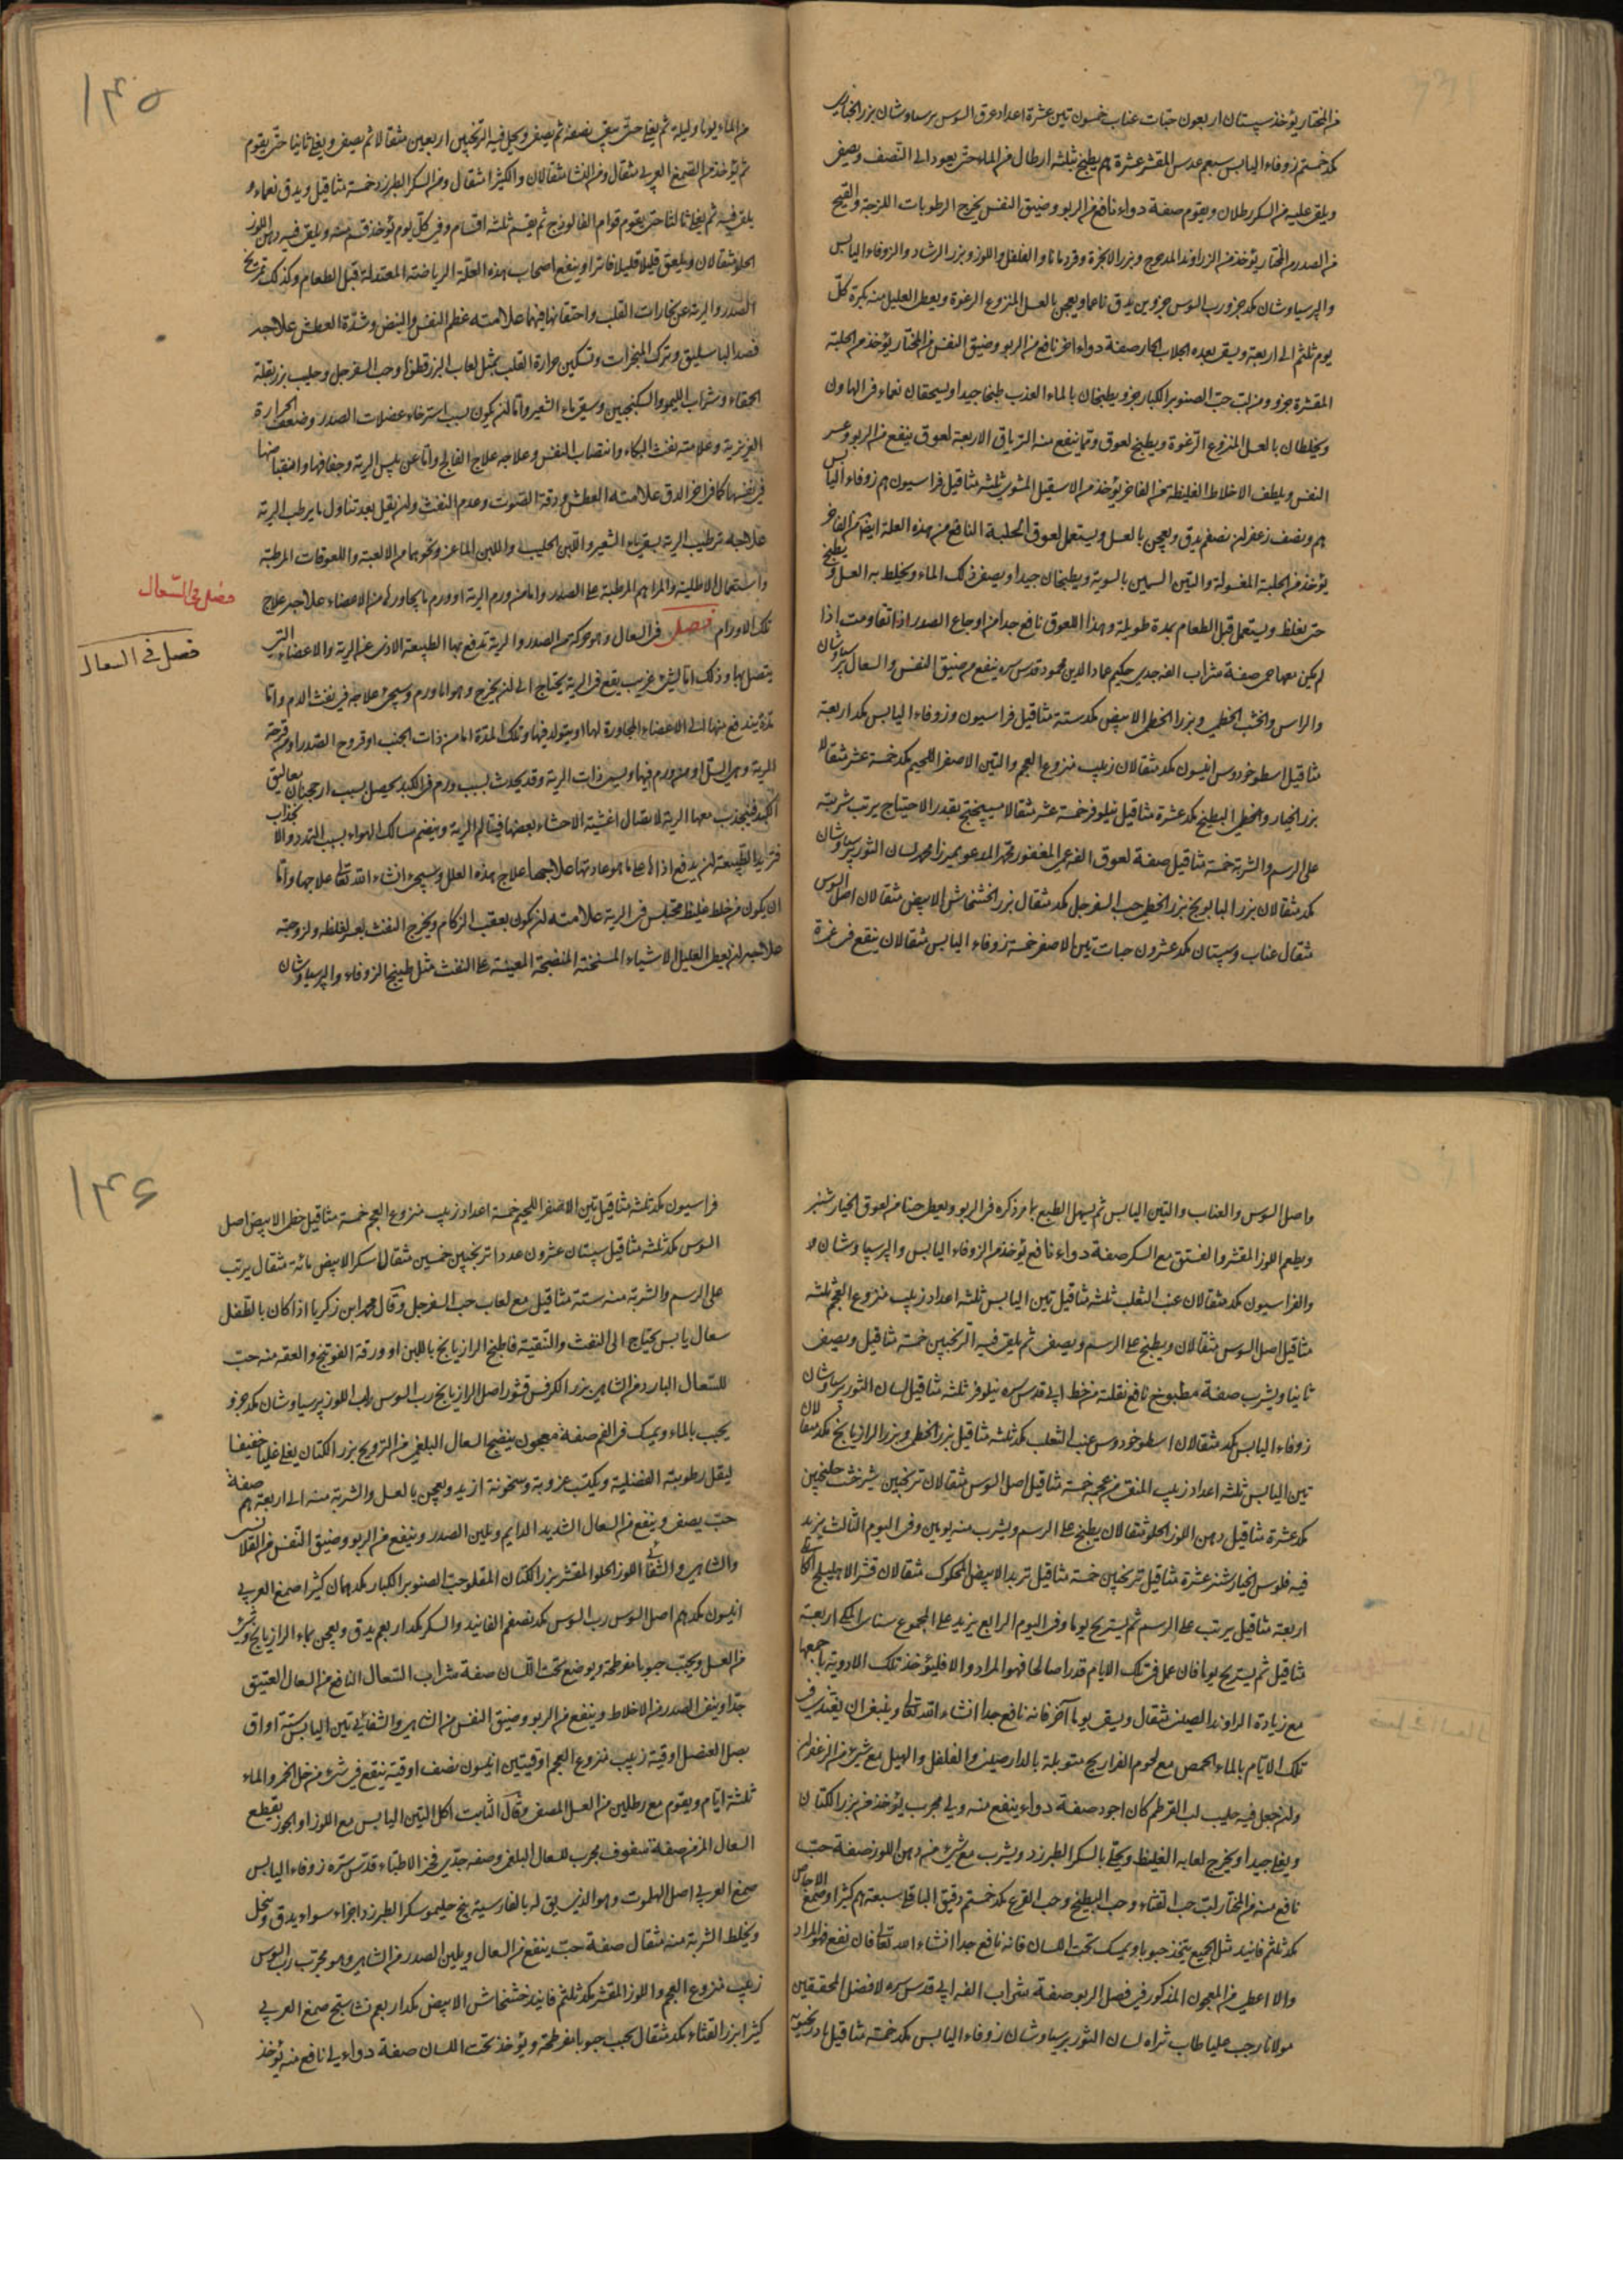 من المختار يؤخذ سپستان اربعون حبات عناب خمسون تين عشرة اعداد عرق السوس برسياوشان بزر الخبازى
مكد خمستم زوفاء اليابس سبعم عدس المقشر عشرة م يطبخ بثلثة ارطال من الماء حتى يعود الى النصف ويصفى
ويلقى عليه من السكر رطلان ويقوم صفة دواء نافع من الربو وضيق النفس يخرج الرطوبات اللزجة والقيح
من الصدر من المختار يؤخذ من الزراوند المدحرج وبزر الانجرة وقردمانا والفلفل واللوز وبزر الرشاد والزوفاء اليابس
والپرسياوشان مكد جزو رب السوس جزوين يدق ناعما ويعجن بالعسل المنزوع الرغوة ويعطى العليل منه بكرة كلّ
يوم ثلثم الى اربعة ويسقى بعده الجلاب الحار صفة دواء اخر نافع من الربو وضيق النفس من المختار يؤخذ من الحلبة
المقشرة جزو ومن لب حب الصنوبر الكبار جزو يطبخان بالماء العذب طبخا جيدا ويسحقان نعماء فى الهاون
ويخلطان بالعسل المنزوع الرغوة ويطبخ لعوق ومما ينفع منه الترياق الاربعة لعوق ينفع من الربو وعسر
النفس ويلطف الاخلاط الغليظة من الفاخر يؤخذ من الاسقيل المشوى ثلثة مثاقيل فراسيون م زوفاء اليابس
م ونصف زعفران نصفم يدق ويعجن بالعسل ويستعمل لعوق الحلبة النافع من هذه العلة ايضا من الفاخر
يؤخذ من الحلبة المغسولة والتين السمين بالسوية ويطبخان جيدا ويصفى ذلك الماء ويخلط به العسل ويطبخ
حتى يغلظ ويستعمل قبل الطعام بمدة طويلة وهذا اللعوق نافع جدا من اوجاع الصدر اذا تقاومت اذا
لم يكن معها حمى صفة شراب الفه جدى حكيم عماد الدين محمود قدس سره ينفع من ضيق النفس والسعال پرسياوشان
والراس والخشب الخطمى وبزر الخطمى الابيض مكد ستة مثاقيل فراسيون وزوفاء اليابس مكد اربعة
مثاقيل اسطوخودوس انيسون مكد مثقالان زبيب منزوع العجم والتين الاصفر اللحيم مكد خمسة عشر مثقالا
بزر الخيار والخطمى البطيخ مكد عشرة مثاقيل نيلوفر خمسة عشر مثقالا ميبختج بقدر الاحتياج يرتب شربته
على الرسم والشربة خمسة مثاقيل صفة لعوق الفه عمى المغفور محمد المدعو بميرزا محمد لسان الثور پرسياوشان
مكد مثقالان بزر البابونج بزر الخطمى حب السفرجل مكد مثقال بزر الخشخاش الابيض مثقالان اصل السوس
مثقال عناب وسپستان مكد عشرون حبات تين الاصفر خمسة زوفاء اليابس مثقالان ينقع فى غمرة
١۴۵
من الماء يوما وليلة ثم يغلى حتى يبقى نصفه ثم يصفى ويحل فيه الترنجبين اربعين مثقالا ثم يصفى ويغلى ثانيا حتى يقوم
ثم يؤخذ من الصمغ العربى مثقال ومن النشا مثقالان والكثيرا مثقال ومن السكر الطبرزد خمسة مثاقيل ويدق نعماء و
يلقى فيه ثم يغلى ثالثا حتى يقوم قوام الفالوذج ثم يقسم ثلثة اقسام وفى كلّ يوم يؤخذ قسم منه ويلقى فيه دهن اللوز
الحلو مثقالان ويلعق قليلا قليلا فاترا وينفع اصحاب هذه العلة الرياضة المعتدلة قبل الطعام وكذلك تمريخ
الصدر والرية عن بخارات القلب واحتقانها فيهما علامته عظم النفس والنبض وشدة العطش علاجه
فصد الباسليق وترك المبخرات وتسكين حرارة القلب بمثل لعاب البزرقطونا وحب السفرجل وحليب بزر بقلة
الحمقاء وشراب الليمو والسكنجبين وسقى ماء الشعير واما ان يكون بسبب استرخاء عضلات الصدر وضعف الحرارة
الغريزية وعلامته نفث البكاء وانتصاب النفس وعلاجه علاج الفالج واما عن يبس الرية وجفافها وانقباضها
فى نفسها كما فى اخر الدق علامته العطش ودقة الصوت وعدم النفث وان يقل بعد تناول ما يرطب الرية
علاجه ترطيب الرية بسقى ماء الشعير واللبن الحليب واللبن الماعز ونحوهما من الالعبة واللعوقات المرطبة
واستعمال الاطلية والمراهم المرطبة على الصدر واما من ورم الرية او ورم ما يجاورها من الاعضاء علاجه علاج
تلك الاورام فصل فى السعال وهو حركة من الصدر والرية تدفع بها الطبيعة الاذى عن الرية والاعضاء التى
فصل فى السّعال
فصل فى السعال
يتصل بها وذلك اما لشىء غريب يقع فى الرية يحتاج الى ان يخرج وهو اما ورم وسيجئ علاجه فى نفث الدم واما
مدة يندفع منها الى الاعضاء المجاورة لها او يتولد فيها وتلك المدة اما من ذات الجنب او قروح الصدر او من قرحة
الرية وهى السل او من ورم فيها ويسمى ذات الرية وقد يحدث بسبب ورم فى الكبد يحصل بسبب ارجحنان معاليق
الكبد فينجذب معها الرية لاتصال اغشية الاحشاء بعضها فيتالم الرية وينضم مسالك الهواء بسبب التمدد والانجذاب
فتريد الطبيعة ان يدفع اذاها على ما هو عادتها علاجها علاج هذه العلل وسيجئ انشاء الله تعالى علاجها واما
ان يكون من خلط غليظ محتبس فى الرية علامته ان يكون بعقب الزكام ويخرج النفث بعد لغلظه ولزوجته
علاجه ان يعطى العليل الاشياء المسخنة المنضجة المعينة على النفث مثل طبيخ الزوفاء والپرسياوشان
واصل السوس والعناب والتين اليابس ثم يسهل الطبع بما مر ذكره فى الربو ويعطى حينا من لعوق الخيارشنبر
ويطعم اللوز المقشر والفستق مع السكر صفة دواء نافع يؤخذ من الزوفاء اليابس والپرسياوشان
والفراسيون مكد مثقالان عنب الثعلب ثلثة مثاقيل تين اليابس ثلثة اعداد زبيب منزوع العجم ثلثة
مثاقيل اصل السوس مثقالان ويطبخ على الرسم ويصفى ثم يلقى فيه الترنجبين خمسة مثاقيل ويصفى
ثانيا ويشرب صفة مطبوخ نافع نقلته من خط ابى قدس سره نيلوفر ثلثة مثاقيل لسان الثور پرسياوشان
زوفاء اليابس مكد مثقالان اسطوخودوس عنب الثعلب مكد ثلثة مثاقيل بزر الخطمى وبزر الرازيانج مكد مثقالان
تين اليابس ثلثة اعداد زبيب المنقى من عجمه خمسة مثاقيل اصل السوس مثقالان ترنجبين شيرخشت جلنجبين
مكد عشرة مثاقيل دهن اللوز الحلو مثقالان يطبخ على الرسم ويشرب منه يومين وفى اليوم الثالث يزيد
فيه فلوس الخيارشنبر عشرة مثاقيل ترنجبين خمسة مثاقيل تربد الابيض المحكوك مثقالان قشر الاهليلج الكابلى
اربعة مثاقيل يرتب على الرسم ثم يستريح يوما وفى اليوم الرابع يزيد على المجموع سناء المكى اربعة
مثاقيل ثم يستريح يوما فان عمل فى تلك الايام قدرا صالحا فهو المراد والا فليؤخذ تلك الادوية باجمعها
مع زيادة الراوند الصينى مثقال ويسقى يوما آخر فانه نافع جدا انشاء الله تعالى وينبغى ان يغتذى فى
تلك الايام بالماء الحمص مع لحوم الفراريج متوبلة بالدارصينى والفلفل والهيل مع شىء من الزعفران
وان جعل فيه حليب لب القرطم كان اجود صفة دواء ينفع منه ولى مجرب يؤخذ من بزر الكتان
ويغلى جيدا ويخرج لعابه الغليظ ويحلى بالسكر الطبرزد ويشرب مع شىء من دهن اللوز صفة حب
نافع منه من المختار لب حب القثاء وحب البطيخ وحب القرع مكد خمستم دقيق الباقلا سبعة م كثيرا وصمغ الاجاص
مكد ثلثم فانيد مثل الجميع يتخذ حبوبا ويمسك تحت اللسان فانه نافع جدا انشاء الله تعالى فان نفع فهو المراد
والا اعطى من المعجون المذكور فى فصل الربو صفة شراب الفه ابى قدس سره لافضل المحققين
مولانا رجب عليا طاب ثراه لسان الثور پرسياوشان زوفاء اليابس مكد خمسة مثاقيل بادرنجبويه
١۴۶
فراسيون مكد ثلثة مثاقيل تين الاصفر اللحيم خمسة اعداد زبيب منزوع العجم خمسة مثاقيل خطمى الابيض اصل
السوس مكد ثلثة مثاقيل سپستان عشرون عددا ترنجبين خمسين مثقالا سكر الابيض مائة مثقال يرتب
على الرسم والشربة منه ستة مثاقيل مع لعاب حب السفرجل وقال محمد ابن زكريا اذا كان بالطفل
سعال يابس يحتاج الى النفث والتنقية فاطبخ الرازيانج باللبن او ورقة الفوتنج والعقه منه حب
للسعال البارد من الشاهى بزر الكرفس قشور اصل الرازيانج رب السوس لب اللوز پرسياوشان مكد جزو
يحبب بالماء ويمسك فى الفم صفة معجون ينضج السعال البلغمى من الترويح بزر الكتان يغلى غليا خفيفا
ليقل رطوبته الفضلية ويكتسب عذوبة وسخونة ازيد ويعجن بالعسل والشربة منه الى اربعة م صفة
حب يصفى وينفع من السعال الشديد الدايم ويلين الصدر وينفع من الربو وضيق النفس من القلانسى
والشاهى والشفائى اللوز الحلو المقشر بزر الكتان المقلو حب الصنوبر الكبار مكد همان كثيرا صمغ العربى
انيسون مكد م اصل السوس رب السوس مكد نصفم الفانيد والسكر مكد اربعم يدق ويعجن بماء الرازيانج وشىء
من العسل ويحبب حبوبا مفرطحة ويوضع تحت اللسان صفة شراب السّعال النافع من السعال العتيق
جدا وينقى الصدر من الاخلاط وينفع من الربو وضيق النفس من الشاهى والشفائى تين اليابس ستة اواق
بصل العنصل اوقية زبيب منزوع العجم اوقيتين انيسون نصف اوقية ينقع فى شىء من خل الخمر والماء
ثلثة ايام ويقوم مع رطلين من العسل المصفى وقال الثابت اكل التين اليابس مع اللوز او الجوز يقطع
السعال المزمن صفة سفوف مجرب للسعال البلغمى وصفه جدّى فخر الاطباء قدس سره زوفاء اليابس
صمغ العربى اصل الهلموت وهو الذى يق له بالفارسية بيخ حليمو سكر الطبرزد اجزاء سواء يدق وينخل
ويخلط الشربة منه مثقال صفة حب ينفع من السعال ويلين الصدر من الشاهى وهو مجرب رب السوس
زبيب منزوع العجم واللوز المقشر مكد ثلثم فانيد خشخاش الابيض مكد اربعم نشاستج صمغ العربى
كثيرا بزر القثاء مكد مثقال يحبب حبوبا مفرطحة ويؤخذ تحت اللسان صفة دواء لى نافع منه يؤخذ